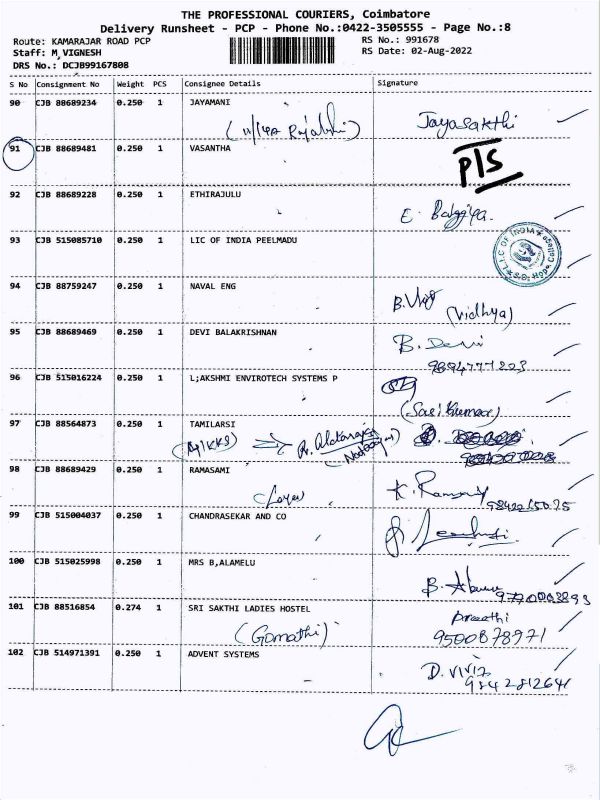 THE PROFESSIONAL COURIERS, Coimbatore
Delivery Runsheet - PCP - Phone No.:0422-3505555 - Page No.:8
Route: KAMARAJAR ROAD PCP RS No.: 991678
Staff: M VIGNESH RS Date: 02-Aug-2022
DRS No.: DCJB99167808
S No Consignment No Weight PCS Consignee Details Signature
90 CJB 88689234 0.250 1 JAYAMANI
Jayasakthi
91 CJB 88689481 0.250 1 VASANTHA
P/S
92 CJB 88689228 0.250 1 ETHIRAJULU
E.
93 CJB 515085710 0.250 1 LIC OF INDIA PEELMADU
L.I.C OF INDIA
94 CJB 88759247 0.250 1 NAVAL ENG
B.
(Vidhya)
95 CJB 88689469 0.250 1 DEVI BALAKRISHNAN
B. Devi
9894777203
96 CJB 515016224 0.250 1 L;AKSHMI ENVIROTECH SYSTEMS P
(Sasikumar)
97 CJB 88564873 0.250 1 TAMILARSI
98 CJB 88689429 0.250 1 RAMASAMI
K. Ramasamy
99 CJB 515004037 0.250 1 CHANDRASEKAR AND CO
100 CJB 515025998 0.250 1 MRS B,ALAMELU
B.
101 CJB 88516854 0.274 1 SRI SAKTHI LADIES HOSTEL
(Gomathi)
Preethi
9500878971
102 CJB 514971391 0.250 1 ADVENT SYSTEMS
D.
9842812641